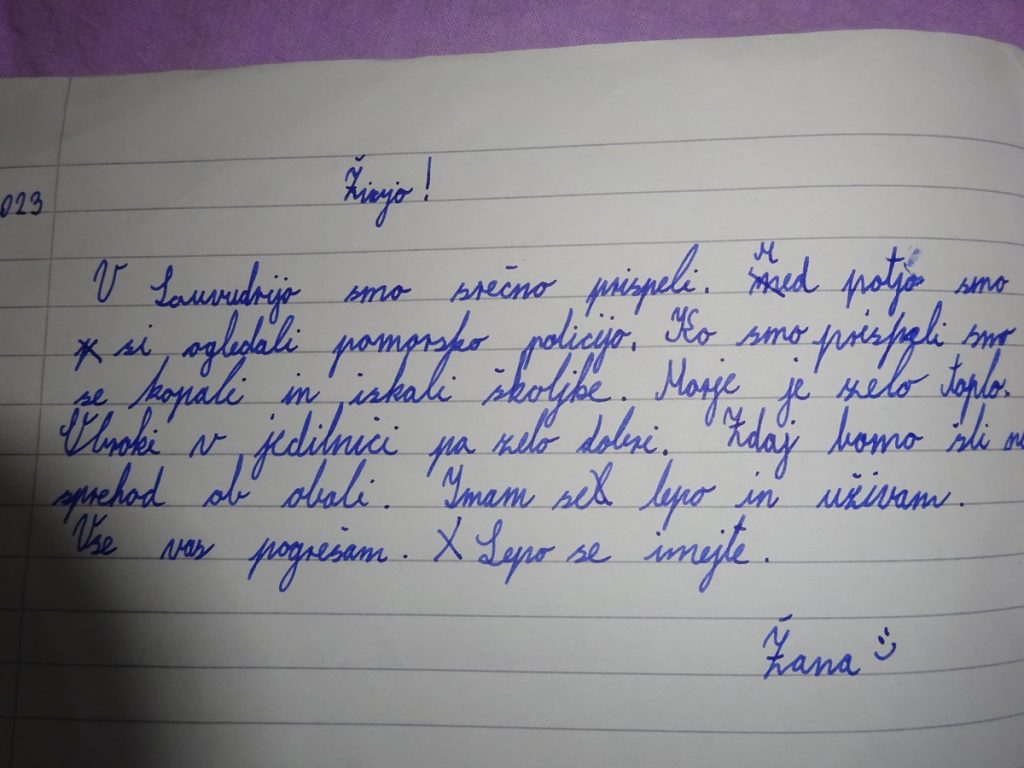 Živjo!
023
V Sauvudrijo smo srečno prispeli. Med potjo smo
si ogledali pomorsko policijo. Ko smo prispeli smo
se kopali in iskali školjke. Morje je zelo toplo.
Obroki v jedilnici pa zelo dobri. Zdaj bomo šli na
sprehod ob obali. Imam se lepo in uživam.
Vse vas pogrešam. Lepo se imejte.
Žana